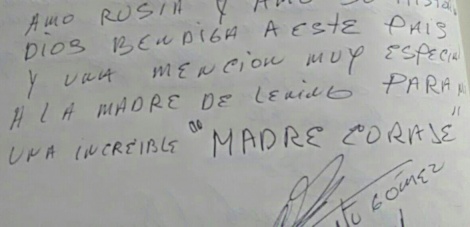 AMO RUSIA Y AMO SU
DIOS BENDIGA A ESTE PAIS
Y UNA MENCION MUY ESPECIA
A LA MADRE DE LENINO PARA
UNA INCREIBLE "MADRE CORAJE"
GÓMEZ